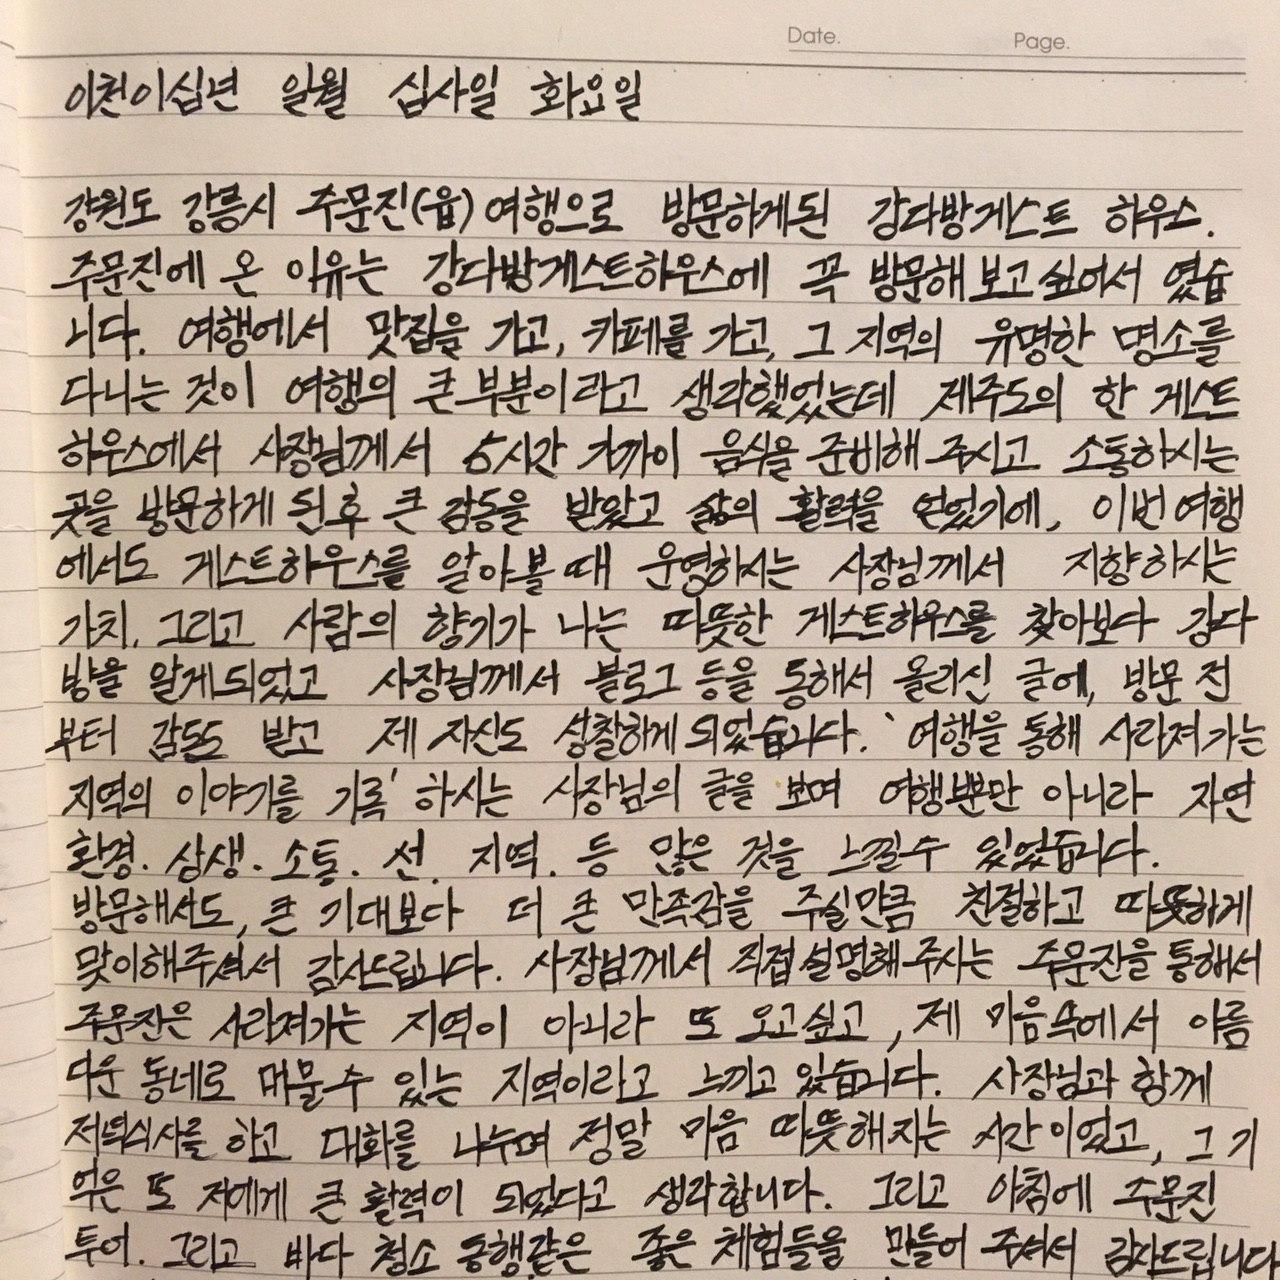 Date. Page.
이천이십년 일월 십사일 화요일
강원도 강릉시 주문진(읍) 여행으로 방문하게된 강다방게스트 하우스.
주문진에 온 이유는 강다방게스트하우스에 꼭 방문해 보고 싶어서 였습
니다. 여행에서 맛집을 가고, 카페를 가고, 그 지역의 유명한 명소를
다니는 것이 여행의 큰 부분이라고 생각했었는데 제주도의 한 게스트
하우스에서 사장님께서 5시간 가까이 음식을 준비해 주시고 소통하시는
곳을 방문하게 된 후 큰 감동을 받았고 삶의 활력을 얻었기에, 이번 여행
에서도 게스트하우스를 알아볼 때 운영하시는 사장님께서 지향하시는
가치, 그리고 사람의 향기가 나는 따뜻한 게스트하우스를 찾아보다 강다
방을 알게되었고 사장님께서 블로그 등을 통해서 올리신 글에, 방문 전
부터 감동도 받고 제 자신도 성찰하게 되었습니다. '여행을 통해 사라져가는
지역의 이야기를 기록' 하시는 사장님의 글을 보며 여행뿐만 아니라 자연
환경. 상생. 소통. 선. 지역. 등 많은 것을 느낄수 있었습니다.
방문해서도, 큰 기대보다 더 큰 만족감을 주실만큼 친절하고 따뜻하게
맞이해주셔서 감사드립니다. 사장님께서 직접 설명해 주시는 주문진을 통해서
주문진은 사라져가는 지역이 아니라 또 오고싶고, 제 마음속에서 아름
다운 동네로 머물수 있는 지역이라고 느끼고 있습니다. 사장님과 함께
저녁식사를 하고 대화를 나누며 정말 마음 따뜻해지는 시간이었고, 그 기
억은 또 저에게 큰 활력이 되었다고 생각합니다. 그리고 아침에 주문진
투어. 그리고 바다 청소 동행같은 좋은 체험들을 만들어 주셔서 감사드립니다